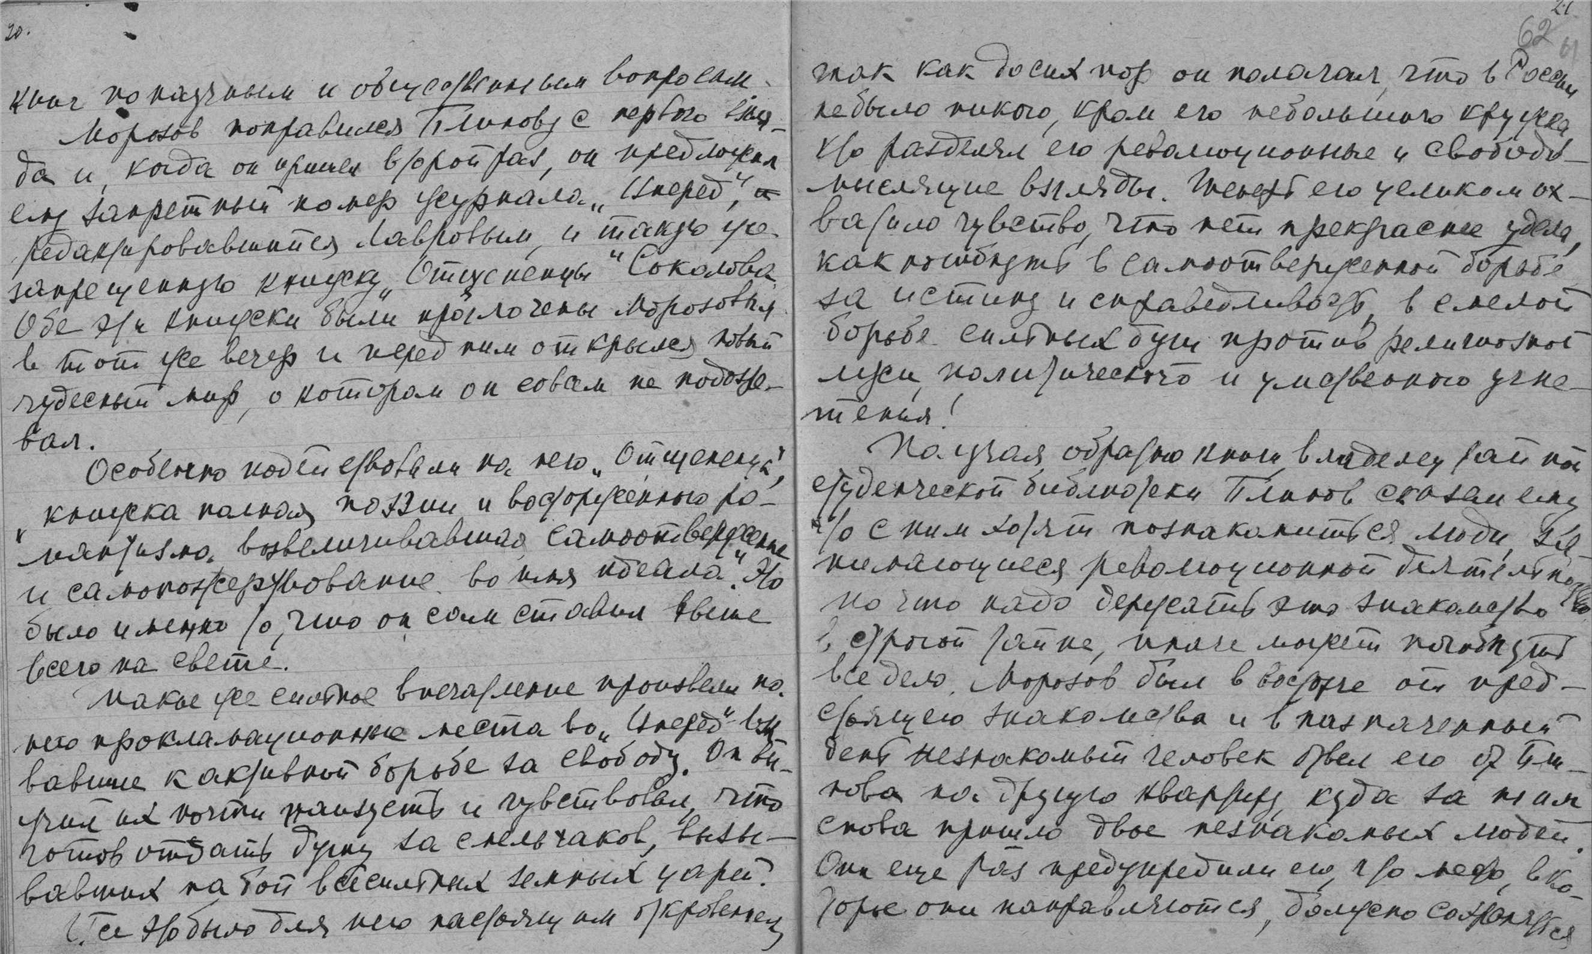 20.
книг по научным и общественным вопросам.
Морозов понравился Блинову с первого взгля-
да и, когда он пришел второй раз, он предложил
ему запретный номер журнала „Вперед“, и
редактировавшийся Лавровым, и такую же
запрещенную книжку „Отщепенцы“ Соколова
Обе эти книжки были проглочены Морозовым
в тот же вечер и перед ним открылся новый
чудесный мир, о котором он совсем не подозре-
вал.
Особенно подействовали на него „Отщепенцы“,
„книжка полная поэзии и восторженного ро-
мантизма, возвеличивавшая самоотвержение
и самопожертвование во имя идеала“. Это
было именно то, что он сам ставил выше
всего на свете.
Такое же сильное впечатление произвели на
него прокламационные места во „Вперед“ взы
вавшие к активной борьбе за свободу. Он вы-
учил их почти наизусть и чувствовал, что
готов отдать душу за смельчаков, вызы-
вавших на бой всесильных земных царей.
Все это было для него настоящим откровением,
21.
62
61
так как до сих пор он полагал, что в России
не было никого, кром его небольшого кружка,
кто разделял его революционные и свободо-
мыслящие взгляды. Теперь его целиком ох-
ватило чувство, что нет прекраснее удела,
как погибнуть в самоотверженной борьбе
за истину и справедливость, в смелой
борьбе сильных душ против религиозной
лжи, политического и умственного угне-
тения!
Получая обратно книги, владелец тайной
студенческой библиотеки Блинов сказал ему
что с ним хотят познакомиться люди, за-
нимающиеся революционной деятельностью
но что надо держать это знакомство
в строгой тайне, иначе может погибнуть
все дело. Морозов был в восторге от пред-
стоящего знакомства и в назначенный
день незнакомый человек отвел его от Бли-
нова на другую квартиру, куда за ним
снова пришло двое незнакомых людей.
Они еще раз предупредили его, что место, в ко-
торое они направляются, должно сохраняться